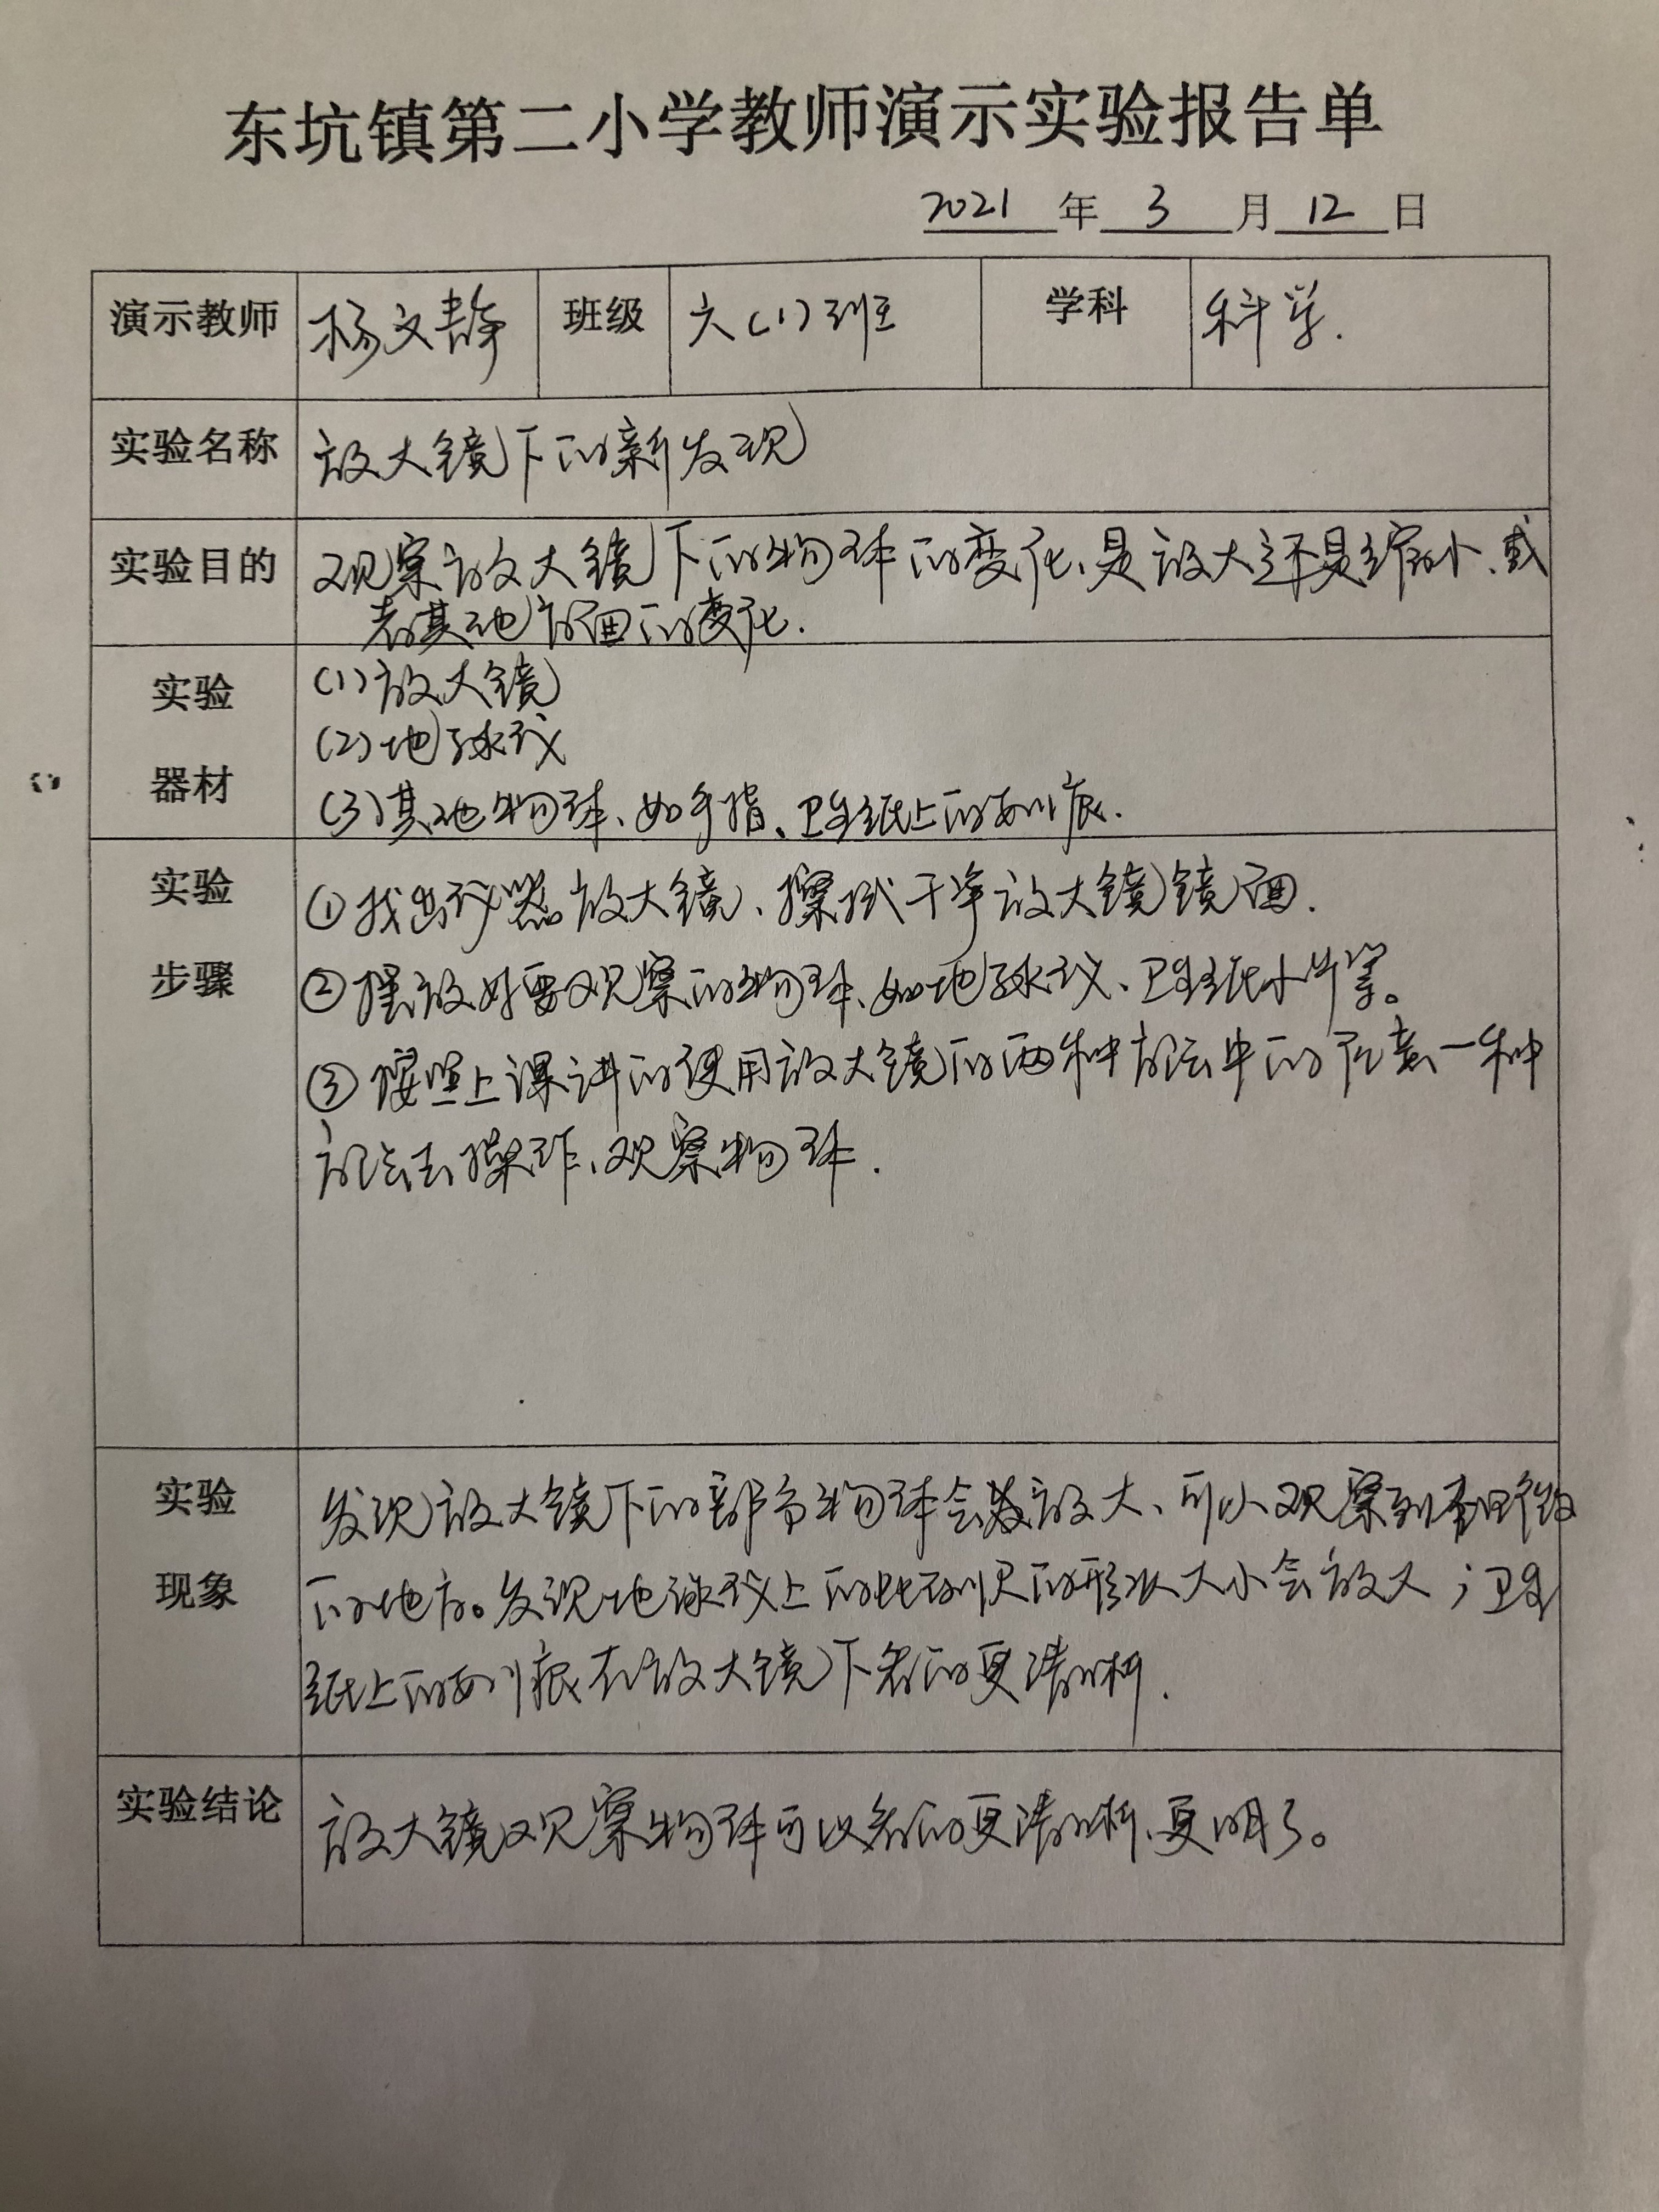 东坑镇第二小学教师演示实验报告单
2021 年 3 月 12 日
演示教师 杨文静 班级 六(1)班 学科 科学.
实验名称 放大镜下的新发现
实验目的 观察放大镜下的物体的变化、是放大还是缩小、或
者其他方面的变化.
实验 (1)放大镜
(2)地球仪
器材 (3)其他物体、如手指、卫生纸上的压痕.
实验 ①找出仪器放大镜、擦拭干净放大镜镜面.
步骤 ②摆放好要观察的物体、如地球仪、卫生纸小片等。
③按照上课讲的使用放大镜的两种方法中的任意一种
方法去操作、观察物体.
实验 发现放大镜下的部分物体会放大、可以观察到细微
现象 的地方。发现地球仪上的比例尺的形状大小会放大;卫生
纸上的压痕在放大镜下看的更清晰.
实验结论 放大镜观察物体可以看的更清晰、更明了。